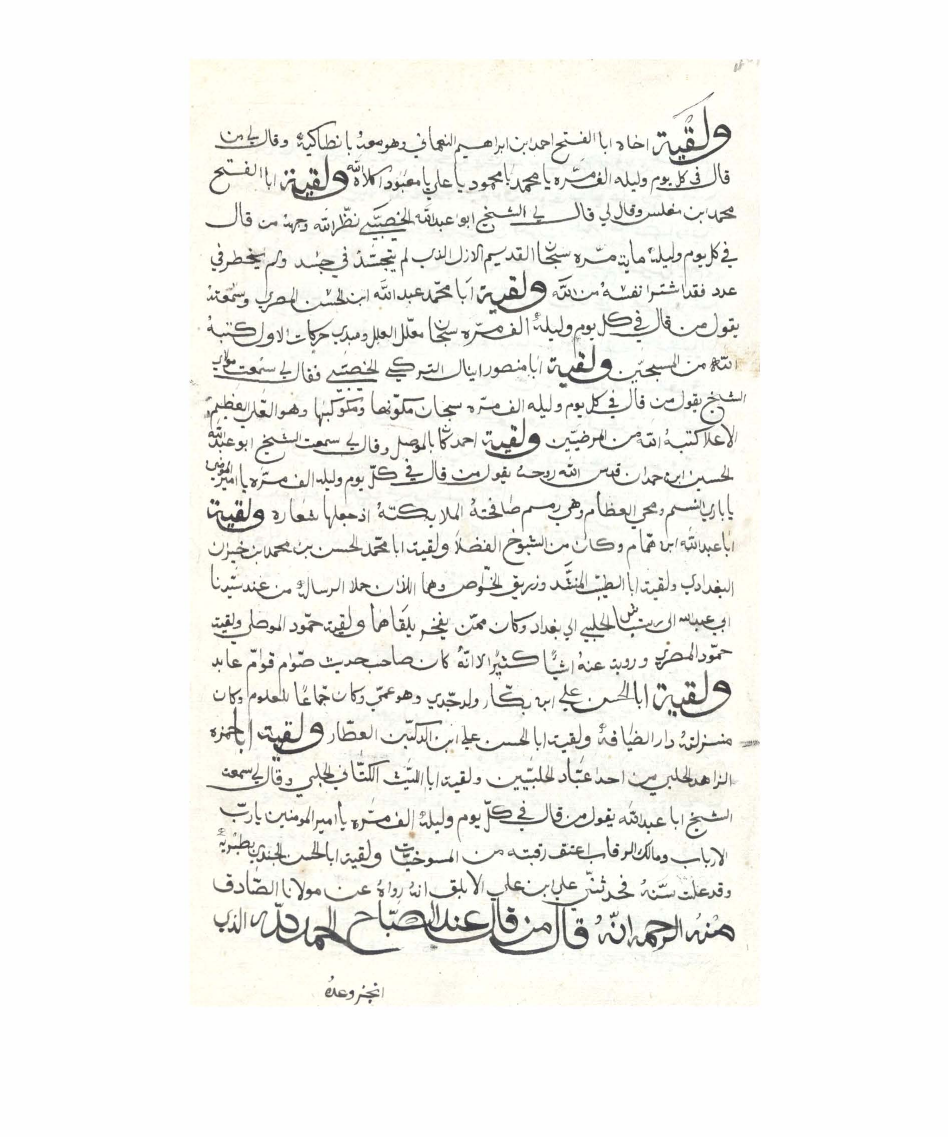 ولقية اخاه ابا الفتح احمد ابن ابراهيم النعماني وهو معه بانطاكيه وقال لي من
قال في كل يوم وليله الف مره يا محمد يا محمود يا علي يا معبود اكلاه الله ولقية ابا الفتح
محمد بن مغلس وقال لي قال لي الشيخ ابو عبدالله الخصيبي نظر الله وجهه من قال
في كل يوم وليلة ماية مره سبحان القديم الازل الذي لم يتجسد في جسد ولم يخطر في
عدد فقد اشترا نفسه من الله ولقية ابا محمد عبد الله ابن الحسن المصري وسمعته
يقول من قال في كل يوم وليلة الف مره سبحان معلل العلل ومبدي حركات الاول كتبه
الله من المسبحين ولقية ابا منصور اينال التركي الخصيبي فقال لي سمعت مولاي
الشيخ يقول من قال في كل يوم وليله الف مره سبحان مكونها ومكوكبها وهو العلي العظيم
الاعلا كتبه الله من المرضيين ولقية احمد بالموصل وقال لي سمعت الشيخ ابو عبدالله
الحسين ابن حمدان قدس الله روحه يقول من قال في كل يوم وليله الف مره يا امير
يا باري النسم ومحي العظام وهي رمم صافحته الملايكته اذ جعلها شعاره ولقية
ابا عبدالله ابن همام وكان من الشيوخ الفضلا ولقية ابا محمد الحسن بن محمد بن خيزن
البغدادي ولقية ابا الطيب المنشد وزريق الخواص وهما اللذان حملا الرساله من عند سيدنا
ابي عبدالله الى الحلبي الي بغداد وكان ممن يفخر بلقاهما ولقية حمود الموصلي ولقية
حمود المصري وروية عنه اشيا كثير الا انه كان صاحب حديث صوام قوام عابد
ولقية ابا الحسن علي ابن بكار ولد جدي وهو عمي وكان جماعا للعلوم وكان
منزلته دار الضيافه ولقية ابا الحسن علي ابن الدكين العطار ولقية ابا حمزه
الزاهد الحلبي من احد عباد الحلبيين ولقية ابا الليث الكتاني الحلبي وقال لي سمعت
الشيخ ابا عبدالله يقول من قال في كل يوم وليلة الف مره يا امير المومنين يا رب
الارباب ومالك الرقاب اعتق رقبته من المسوخيات ولقية ابا الحسن الجندي بطبريه
وقد علت سنه فحدثني علي ابن علي الابلق انه رواه عن مولانا الصادق
منه الرحمه انه قال من قال عند الصباح الحمد لله الذي
انجز وعده